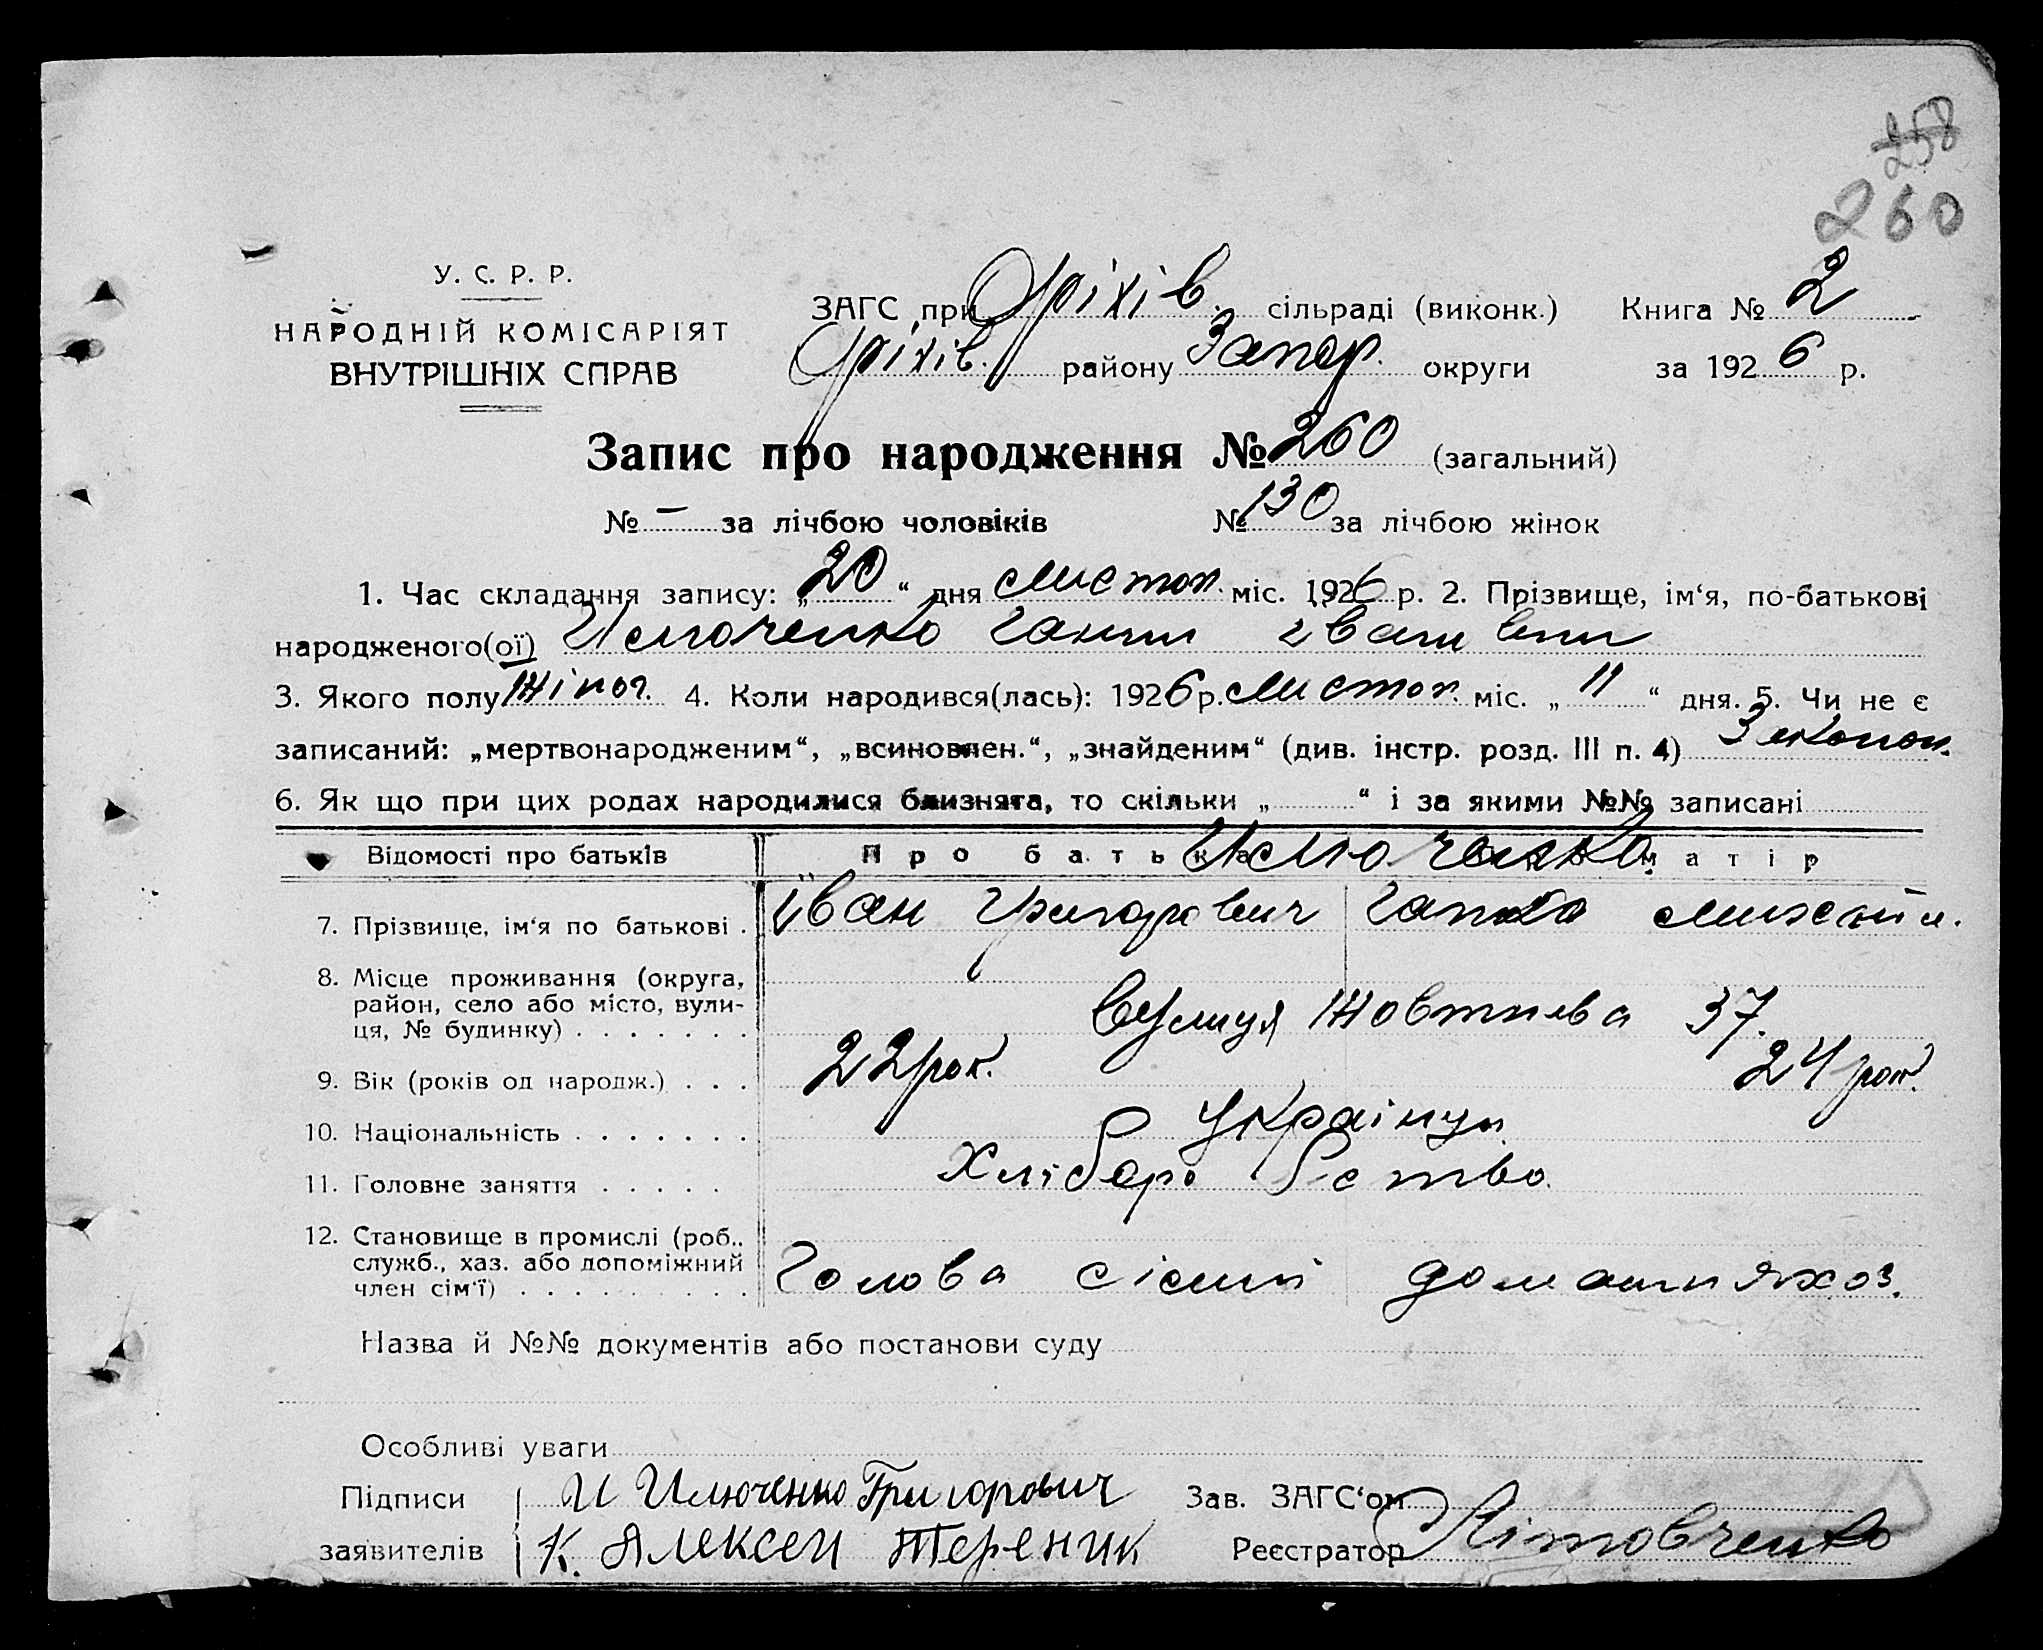 258
260
У. С. Р. Р.
НАРОДНІЙ КОМІСАРІЯТ
ВНУТРІШНІХ СПРАВ
ЗАГС при Оріхів. сільраді (виконк.) Книга № 2
Оріхів. району Запор. округи за 1926 р.
Запис про народження № 260 (загальний)
№ — за лічбою чоловіків № 130 за лічбою жінок
1. Час складання запису: „20“ дня листоп. міс. 1926 р. 2. Прізвище, ім‘я, по-батькові
народженого(ої) Ілюченко Ганни Івановни
3. Якого полу жіноч. 4. Коли народився(лась): 1926 р. листоп. міс. „11“ дня. 5. Чи не є
записаний: „мертвонародженим“, „всиновлен.“, „знайденим“ (див. інстр. розд. III п. 4) Законон.
6. Як що при цих родах народилися близнята, то скільки „ “ і за якими №№ записані
Відомості про батьків Про батька Про матір
Ілюченко.
7. Прізвище, ім‘я по батькові . Іван Григорович Ганна Михайл.
8. Місце проживання (округа,
район, село або місто, вули-
ця, № будинку) . . . . . . . вулиця Жовтнева 37.
9. Вік (років од народж.) . . . 22 рок. 24 рок.
10. Національність . . . . . . . Українци
11. Головне заняття . . . . . Хліборобство.
12. Становище в промислі (роб..
служб., хаз. або допоміжний
член сім‘ї) . . . . . . . . . Голова сімьї домашня хоз.
Назва й №№ документів або постанови суду
Особливі уваги
Підписи И Илюченко Григорович Зав. ЗАГС‘ом
заявителів К. Алексеи Тереник Реєстратор Літовченко